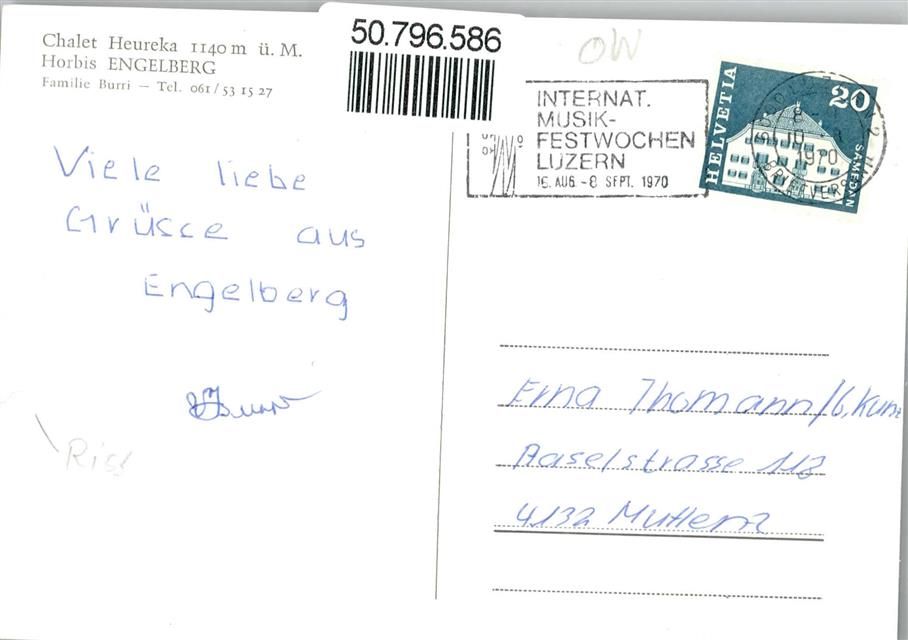 Chalet Heureka 1140 m ü. M.
Horbis ENGELBERG
Familie Burri — Tel. 061 / 53 15 27
50.796.586
OW
INTERNAT.
MUSIK-
FESTWOCHEN
LUZERN
16. AUG. - 8. SEPT. 1970
HELVETIA
20
SAMEDAN
1970
Viele liebe
Grüsse aus
Engelberg
Erna Thomann/G. Kunz
Baselstrasse 113
4132 Muttenz